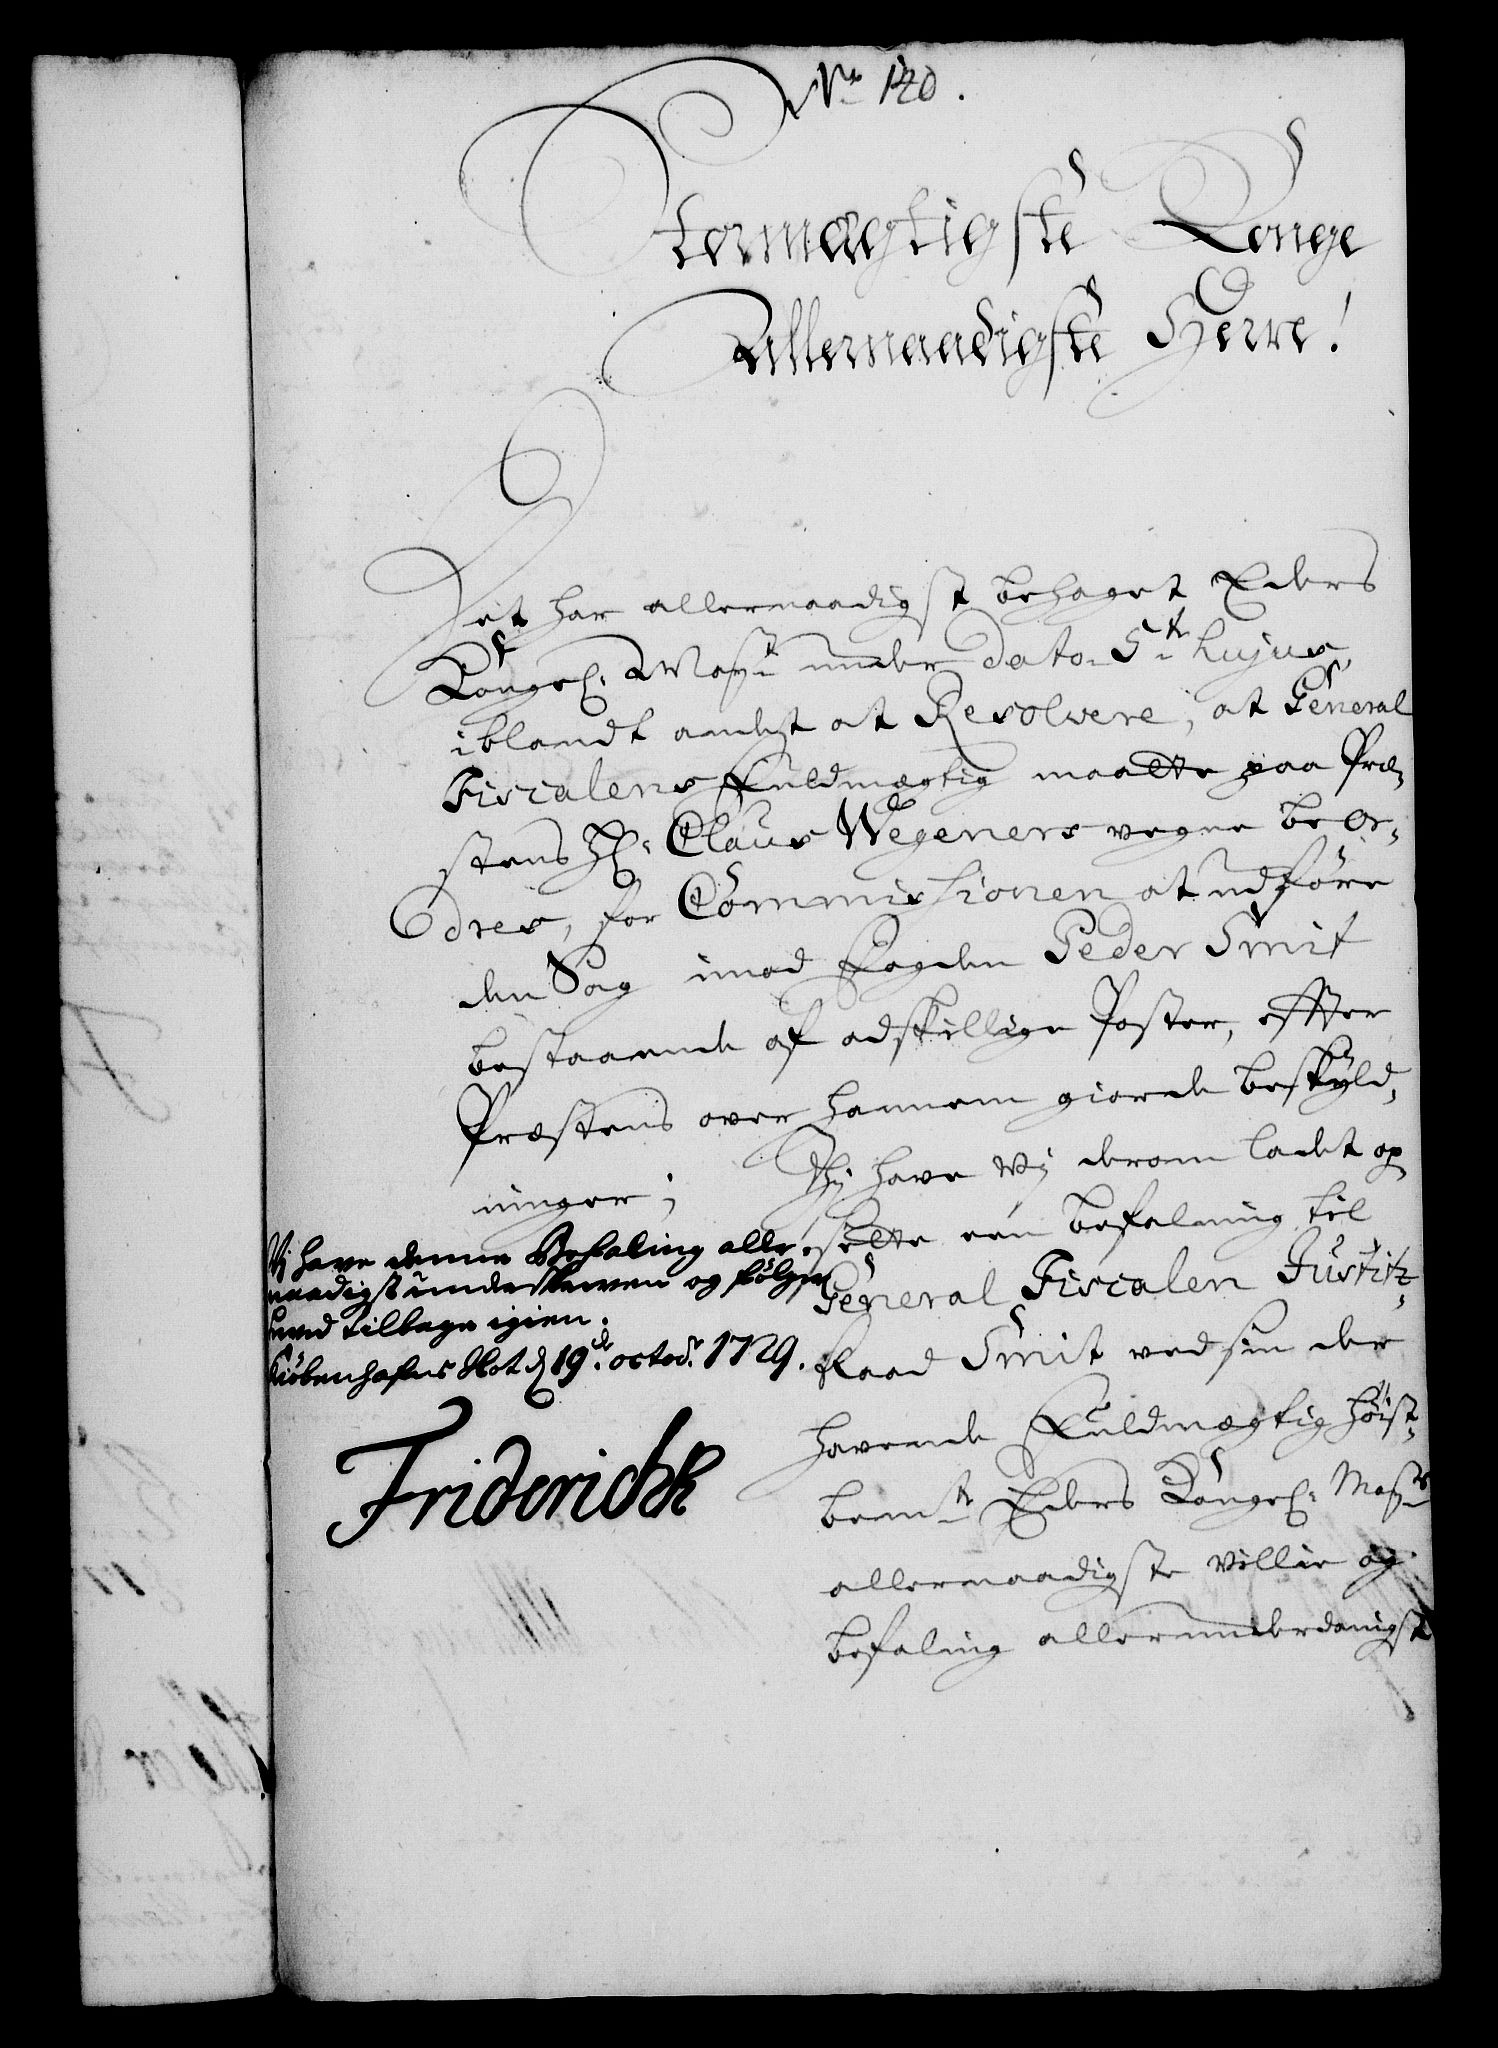 No 120.
Stormægtigste Konge
Allernaadigste Herre!
Det har allernaadigst behaget Eders
Kongel: Mayt: under dato 5te hujus,
iblandt andet at Resolvere, at General
Fiscalens Fuldmægtig maatte paa Præ-
stens Hr: Claus Wegeners vegne beor-
dres, for Commissionen at udføre
den Sag imod Fogden Peder Smit
bestaaende af adskillige Poster, effter
Præstens over hannem giorde beskyld-
ninger; Thj have Vj derom ladet op-
sette een befalning til
General Fiscalen Justitz-
Raad Smit ved sin der
havende Fuldmægtig høist-
bemte Eders Kongel: Mayts
allernaadigste Villie og
befaling allerunderdanigst
Vj have denne Befaling aller-
naadigst underskreven og følger
hermed tilbage igien.
Kiøbenhafns Slot d 19de octobr: 1729.
Friderich R